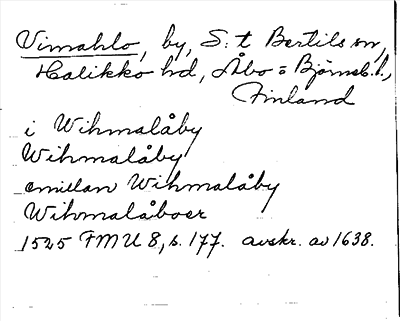 Vimahlo, by, S:t Bertils sn,
Halikko hd, Åbo = Björneb. l.,
Finland
i Wihmalåby
Wihmalåby
emillan Wihmalåby
Wihmalåboer
1525 FMU 8, s. 177. avskr. av 1638.